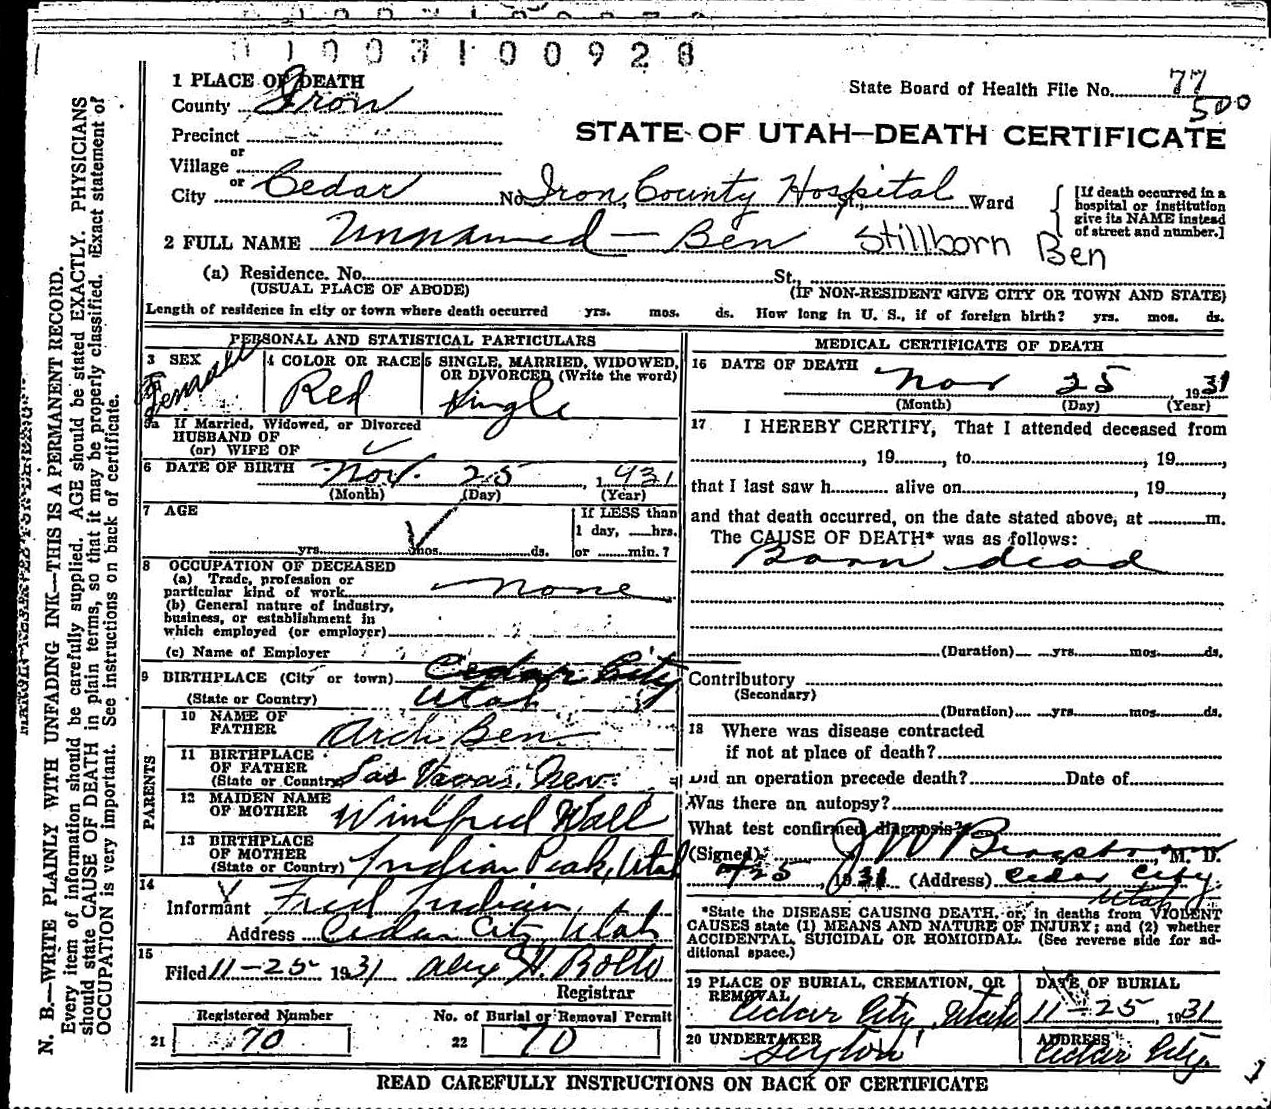 1003100928
1 PLACE OF DEATH
County Iron
State Board of Health File No. 77
500
Precinct
STATE OF UTAH—DEATH CERTIFICATE
or
Village
or
City Cedar No. Iron County Hospital St., Ward
[If death occurred in a
hospital or institution
give its NAME instead
of street and number.]
2 FULL NAME Unnamed — Ben Stillborn Ben
(a) Residence. No. St.,
(USUAL PLACE OF ABODE) (IF NON-RESIDENT GIVE CITY OR TOWN AND STATE)
Length of residence in city or town where death occurred yrs. mos. ds. How long in U. S., if of foreign birth? yrs. mos. ds.
PERSONAL AND STATISTICAL PARTICULARS
3 SEX Female
4 COLOR OR RACE Red
5 SINGLE, MARRIED, WIDOWED,
OR DIVORCED (Write the word)
Single
5a If Married, Widowed, or Divorced
HUSBAND OF
(or) WIFE OF
6 DATE OF BIRTH Nov. 25, 1931
(Month) (Day) (Year)
7 AGE
yrs. mos. ds.
If LESS than
1 day, hrs.
or min.?
8 OCCUPATION OF DECEASED
(a) Trade, profession or
particular kind of work none
(b) General nature of industry,
business, or establishment in
which employed (or employer)
(c) Name of Employer
9 BIRTHPLACE (City or town) Cedar City
(State or Country) Utah
PARENTS
10 NAME OF
FATHER Arch Ben
11 BIRTHPLACE
OF FATHER
(State or Country) Las Vagas, Nev.
12 MAIDEN NAME
OF MOTHER Winifred Wall
13 BIRTHPLACE
OF MOTHER
(State or Country) Indian Peak, Utah
14
Informant Fred Indian
Address Cedar City, Utah
15
Filed 11-25- 1931 Alex H. Rollo
Registrar
Registered Number
21 70
No. of Burial or Removal Permit
22 70
MEDICAL CERTIFICATE OF DEATH
16 DATE OF DEATH
Nov 25, 1931
(Month) (Day) (Year)
17 I HEREBY CERTIFY, That I attended deceased from
, 19, to, 19,
that I last saw h alive on, 19,
and that death occurred, on the date stated above, at m.
The CAUSE OF DEATH* was as follows:
Born dead
(Duration) yrs. mos. ds.
Contributory
(Secondary)
(Duration) yrs. mos. ds.
18 Where was disease contracted
if not at place of death?
Did an operation precede death? Date of
Was there an autopsy?
What test confirmed diagnosis?
(Signed) J W Bergstrom, M. D.
25, 1931 (Address) Cedar City,
Utah
*State the DISEASE CAUSING DEATH, or, in deaths from VIOLENT
CAUSES state (1) MEANS AND NATURE OF INJURY; and (2) whether
ACCIDENTAL, SUICIDAL OR HOMICIDAL. (See reverse side for ad-
ditional space.)
19 PLACE OF BURIAL, CREMATION, OR
REMOVAL
Cedar City, Utah
DATE OF BURIAL
11-25, 1931
20 UNDERTAKER
Sexton
ADDRESS
Cedar City.
READ CAREFULLY INSTRUCTIONS ON BACK OF CERTIFICATE
N. B.—WRITE PLAINLY WITH UNFADING INK—THIS IS A PERMANENT RECORD.
Every item of information should be carefully supplied. AGE should be stated EXACTLY. PHYSICIANS
should state CAUSE OF DEATH in plain terms, so that it may be properly classified. Exact statement of
OCCUPATION is very important. See instructions on back of certificate.